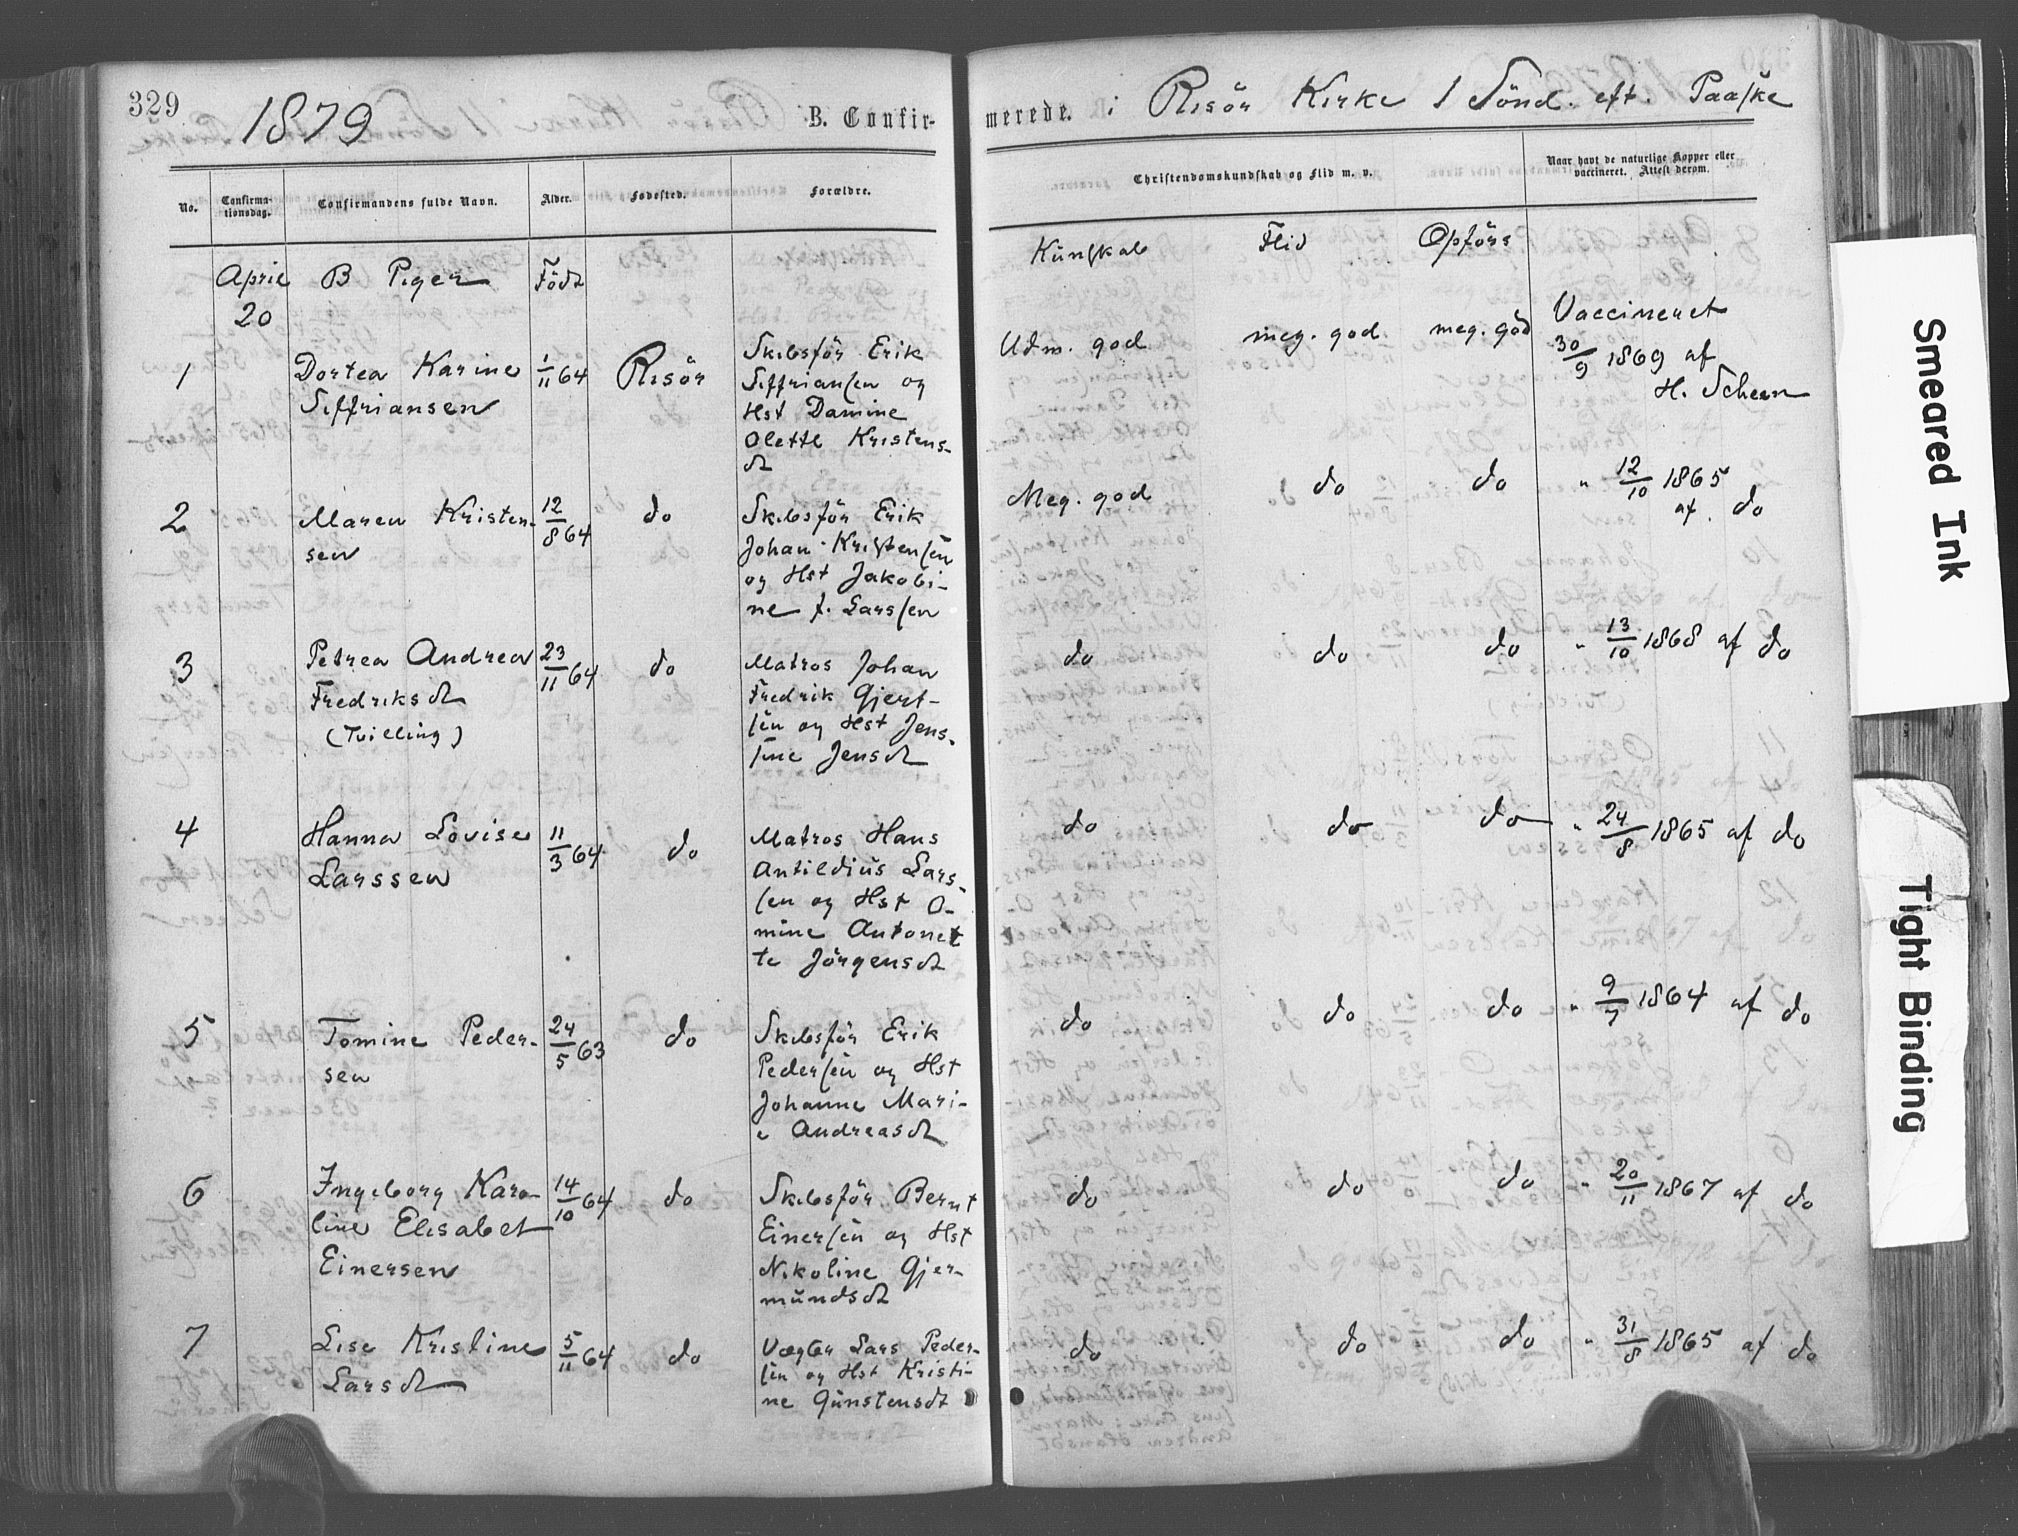 329
1879
B. Confir-
merede. i Risör Kirke 1 Sönd. eft. Paaske
No.
Confirma-
tionsdag.
Confirmandens fulde Navn.
Alder.
Fødested.
Forældre.
Christendomskundskab og Flid m. v.
Naar havt de naturlige Kopper eller
vaccineret. Attest derom.
Kunskab Flid Opförs
April B Piger Födt
20
1 Dortea Karine 1/11 64 Risör
Siffriansen
Skibsför Erik
Siffriansen og
Hst Damine
Olette Kristens-
dt
Udm. god meg. god meg. god
Vaccineret
30/9 1869 af
H. Scheen
2 Maren Kristen- 12/8 64 do
sen
Skibsför Erik
Johan Kristensen
og Hst Jakobi-
ne f. Larssen
Meg. god do do " 12/10 1865
af. do
3 Petrea Andrea 23/11 64 do
Fredriksdt
(Tvilling)
Matros Johan
Fredrik Gjert-
sen og Hst Jens-
sine Jensdt
do do do " 13/10 1868 af do
4 Hanna Lovise 11/3 64 do
Larssen
Matros Hans
Antildius Lars-
sen og Hst O-
mine Antonet
te Jörgensdt
do do do " 24/8 1865 af do
5 Tomine Peder- 24/5 63 do
sen
Skibsför Erik
Pedersen og Hst
Johanne Mari-
e Andreasdt
do do do " 9/7 1864 af do
6 Ingeborg Karo- 14/10 64 do
line Elisabet
Einersen
Skibsför Bernt
Einersen og Hst
Nikoline Gjer-
mundsdt
do do do " 20/11 1867 af do
7 Lise Kristine 5/11 64 do
Larsdt
Vægter Lars Peder-
sen og Hst Kristi-
ne Gunstensdt
do do do " 31/8 1865 af do
Smeared Ink
Tight Binding